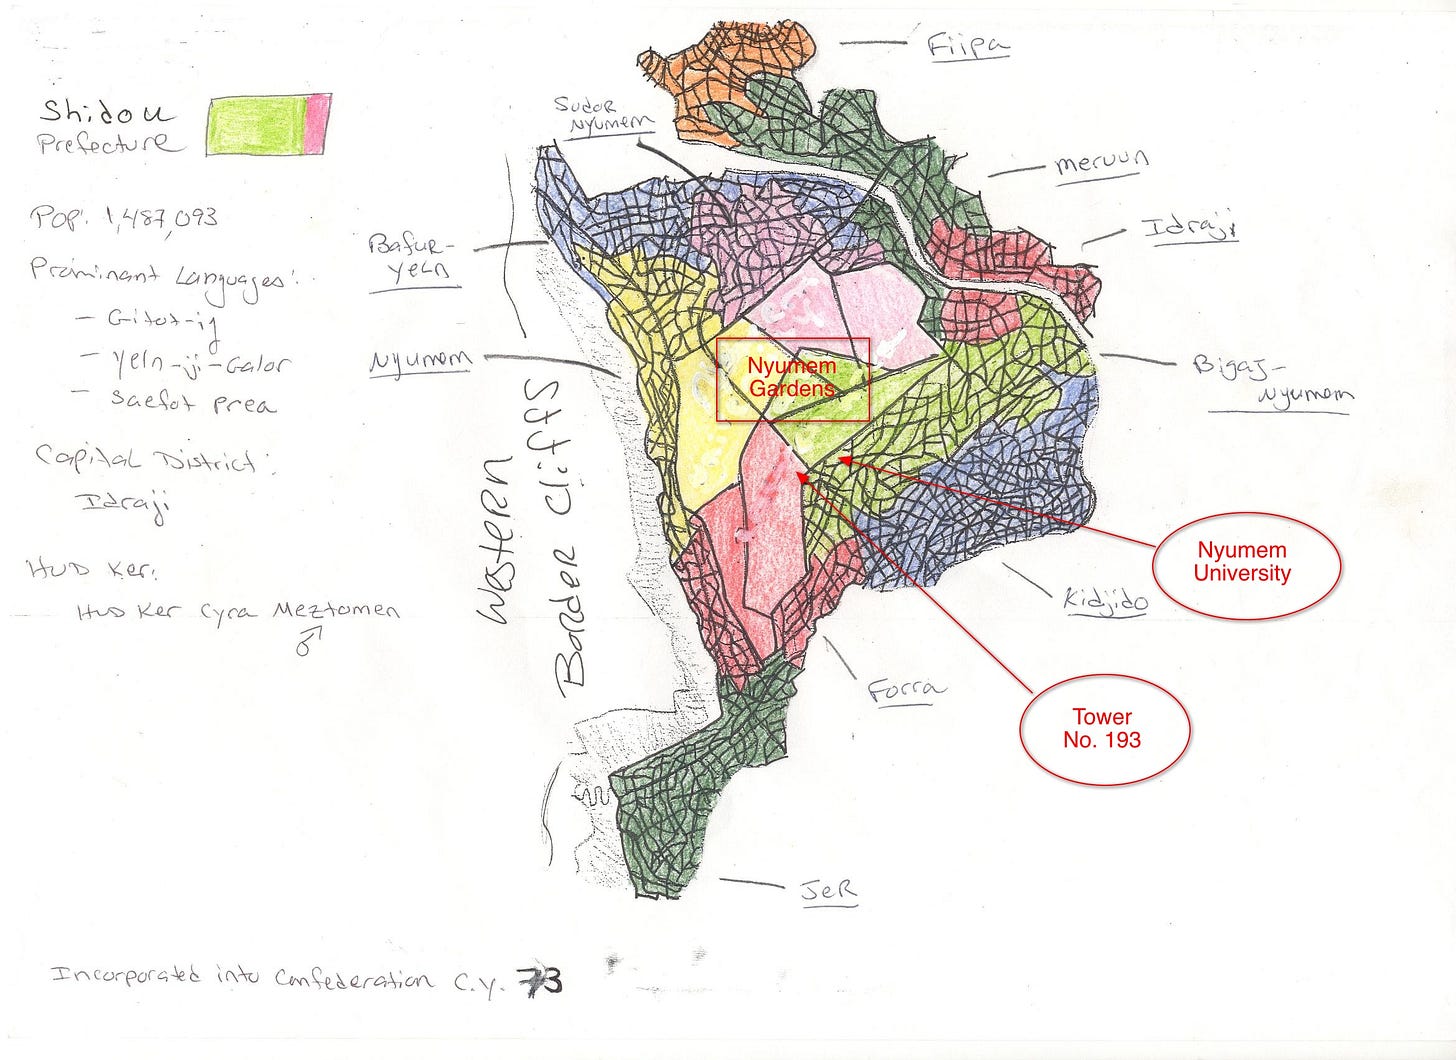 Shidou
Prefecture
Pop. 1,487,093
Prominant Languages:
- Gitot-ij
- Yeln-ji-Galor
- Saefot Prea
Capital District:
Idraji
Hud Ker:
Hud Ker Cyra Meztomen
♂
Incorporated into Confederation C.Y. 73
Fiipa
Sudor
Nyumem
Meruun
Idraji
Bafur-
Yeln
Nyumem
Bigaj-
Nyumem
Nyumem
Gardens
Western
Border Cliffs
Nyumem
University
Kidjido
Forra
Tower
No. 193
Jer